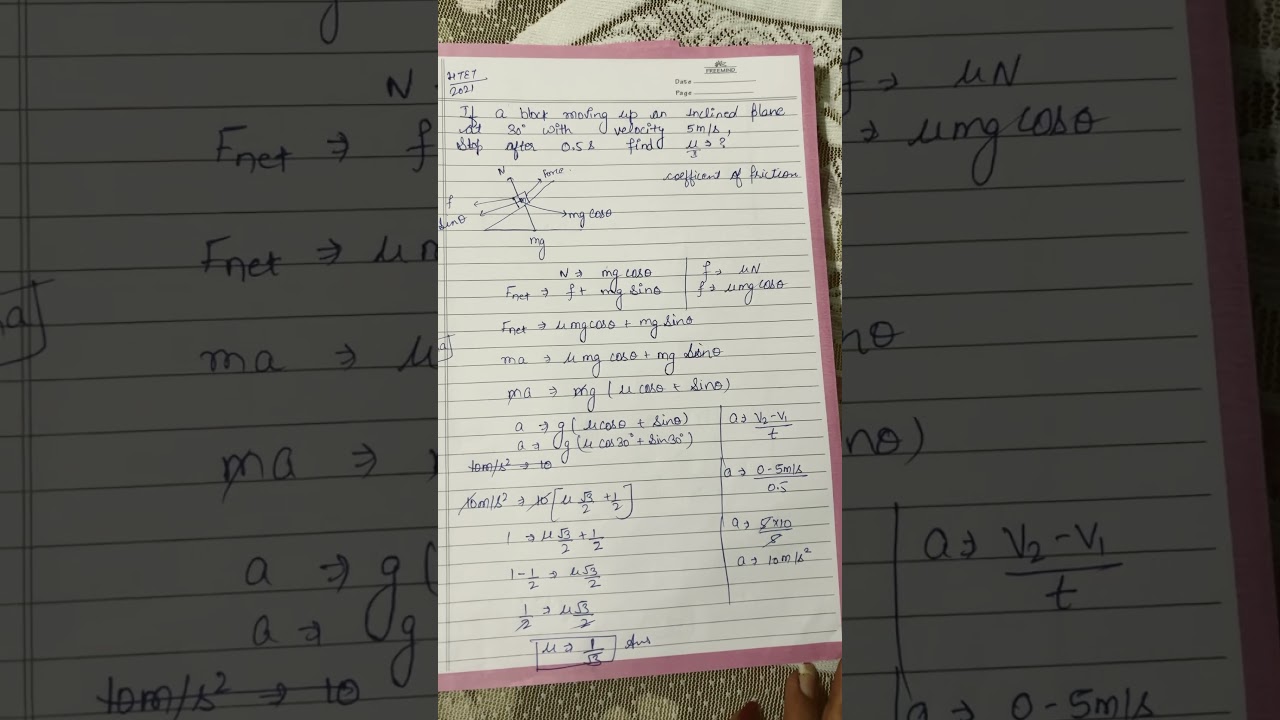 HTET
2021
FREEMIND
Date
Page
If a block moving up an inclined plane
at 30° with velocity 5m/s,
Stop after 0.5s find μ ⇒ ?
coefficent of friction
N
force
f
sinθ
mg cosθ
mg
N ⇒ mg cosθ
Fnet ⇒ f + mg sinθ
f ⇒ μN
f ⇒ μmg cosθ
Fnet ⇒ μmg cosθ + mg sinθ
ma ⇒ μ mg cosθ + mg sinθ
ma ⇒ mg (μ cosθ + sinθ)
a ⇒ g (μcosθ + sinθ)
a ⇒ g (μ cos30° + sin30°)
10m/s² ⇒ 10
10m/s² ⇒ 10 [μ √3/2 + 1/2]
1 ⇒ μ √3/2 + 1/2
1 - 1/2 ⇒ μ √3/2
1/2 ⇒ μ √3/2
μ ⇒ 1/√3 Ans
a ⇒ V₂-V₁/t
a ⇒ 0-5m/s/0.5
a ⇒ 5×10/5
a ⇒ 10m/s²
N
Fnet ⇒ f
Fnet ⇒ μ
ma ⇒ μ
ma ⇒
a ⇒ g(
a ⇒ g
10m/s² ⇒ 10
f ⇒ μN
⇒ μmg cosθ
nθ
nθ)
a ⇒ V₂-V₁/t
a ⇒ 0-5m/s